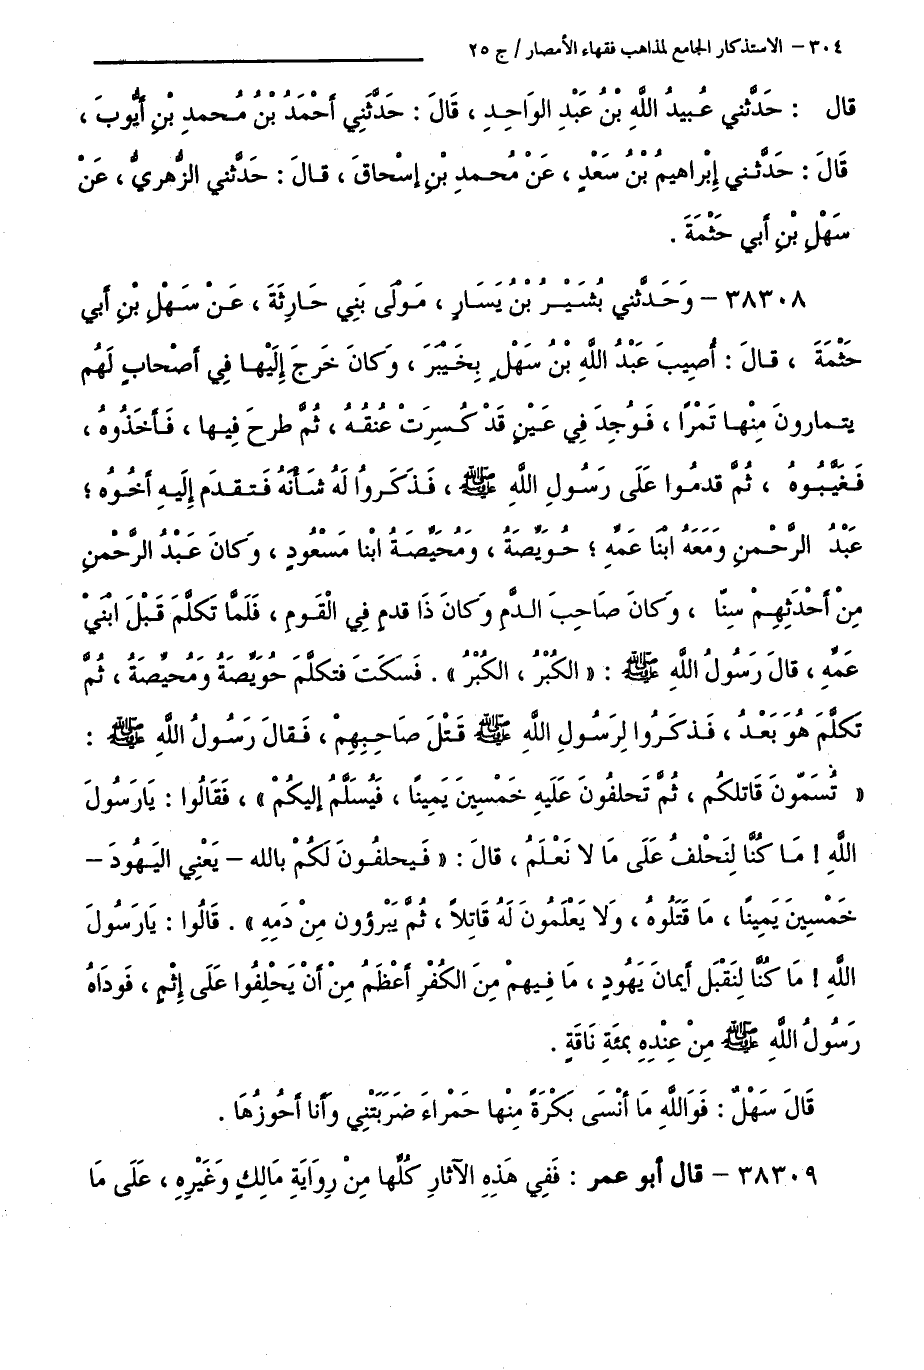 ٣٠٤ – الاستذكار الجامع لمذاهب فقهاء الأمصار / ج ٢٥
قال : حَدَّثني عُبيدُ اللَّهِ بْنُ عَبْدِ الوَاحِدِ ، قَالَ : حَدَّثَنِي أَحْمَدُ بْنُ مُحمدِ بْنِ أَيُّوبَ ،
قَالَ : حَدَّثني إِبْراهِيمُ بْنُ سَعْدٍ ، عَنْ مُحمدِ بْنِ إِسْحاقَ ، قالَ : حَدَّثني الزُّهريُّ ، عَنْ
سَهْلِ بْنِ أَبي حَثْمَةَ .
٣٨٣٠٨ – وَحَدَّثني بُشَيْرُ بْنُ يَسَارٍ ، مَوْلَى بَنِي حَارِثَةَ ، عَنْ سَهْلِ بْنِ أَبي
حَثْمَةَ ، قالَ : أُصِيبَ عَبْدُ اللَّهِ بْنُ سَهْلٍ بِخَيْبَرَ ، وَكَانَ خَرجَ إِلَيْها فِي أَصْحابٍ لَهُم
يتمارونَ مِنْها تَمْرًا ، فَوُجِدَ فِي عَيْنٍ قَدْ كُسِرَتْ عُنقُهُ ، ثُمَّ طرحَ فِيها ، فَأَخَذُوهُ ،
فَغَيَّبُوهُ ، ثُمَّ قدمُوا عَلَى رَسُولِ اللَّهِ ﷺ ، فَذَكَرواُ لَهُ شَأْنَهُ فَتقدم إِلَيهِ أَخُوُه ؛
عَبْدُ الرَّحْمنِ وَمَعَه ابْنَا عَمِّهِ ؛ حُوَيِّصَةُ ، وَمُحَيِّصَةُ ابْنا مَسْعُودٍ ، وَكَانَ عَبْدُ الرَّحْمنِ
مِنْ أَحْدَثِهِمْ سِنّا ، وَكَانَ صَاحِبَ الدَّمِ وَكَانَ ذَا قدمٍ فِي الْقَومِ ، فَلَمَّا تَكلَّمَ قَبْلَ ابْنَيْ
عَمِّهِ ، قالَ رَسُولُ اللَّهِ ﷺ : « الكُبْرُ ، الكُبْرُ » . فَسكَتَ فتكلَّمَ حُوَيِّصَةُ وَمُحيِّصَةُ ، ثُمَّ
تَكلَّمَ هُوَ بَعْدُ ، فَذَكَرُوا لِرَسُولِ اللَّهِ ﷺ قَتْلَ صَاحِبِهِمْ ، فَقالَ رَسُولُ اللَّهِ ﷺ :
« تُسَمّونَ قَاتلكُم ، ثُمَّ تَحلفُونَ عَلَيهِ خَمْسِينَ يَمِينًا ، فَيُسلَّمُ إِليكُمْ » ، فَقَالُوا : يَارَسُولَ
اللَّهِ ! مَا كُنَّا لِنَحْلفُ عَلَى مَا لا نَعْلَمُ ، قالَ : « فَيحلفُونَ لَكُمْ بالله – يَعْنِي اليَهُودَ –
خَمْسِينَ يَمِينًا ، مَا قَتَلُوهُ ، وَلا يَعْلَمُونَ لَهُ قَاتِلاً ، ثُمَّ يَبْرؤُون مِنْ دَمِهِ » . قَالُوا : يَارَسُولَ
اللَّهِ ! مَا كُنَّا لِنَقْبَل أَيمانَ يَهُودٍ ، مَا فِيهمْ مِنَ الكُفْرِ أَعْظَمُ مِنْ أَنْ يَحْلِفُوا عَلَى إِثْمٍ ، فَودَاهُ
رَسُولُ اللَّهِ ﷺ مِنْ عِنْدِهِ بمئَةِ نَاقَةٍ .
قَالَ سَهْلٌ : فَوَاللَّهِ مَا أَنْسَى بَكْرَةً مِنْها حَمْراءَ ضَرَبَتْنِي وَأَنا أَحُوزُهَا .
٣٨٣٠٩ – قال أبو عمر : فَفِي هَذِهِ الآثارِ كُلِّها مِنْ رِوَايَةِ مَالِكٍ وَغَيْرِهِ ، عَلَى مَا